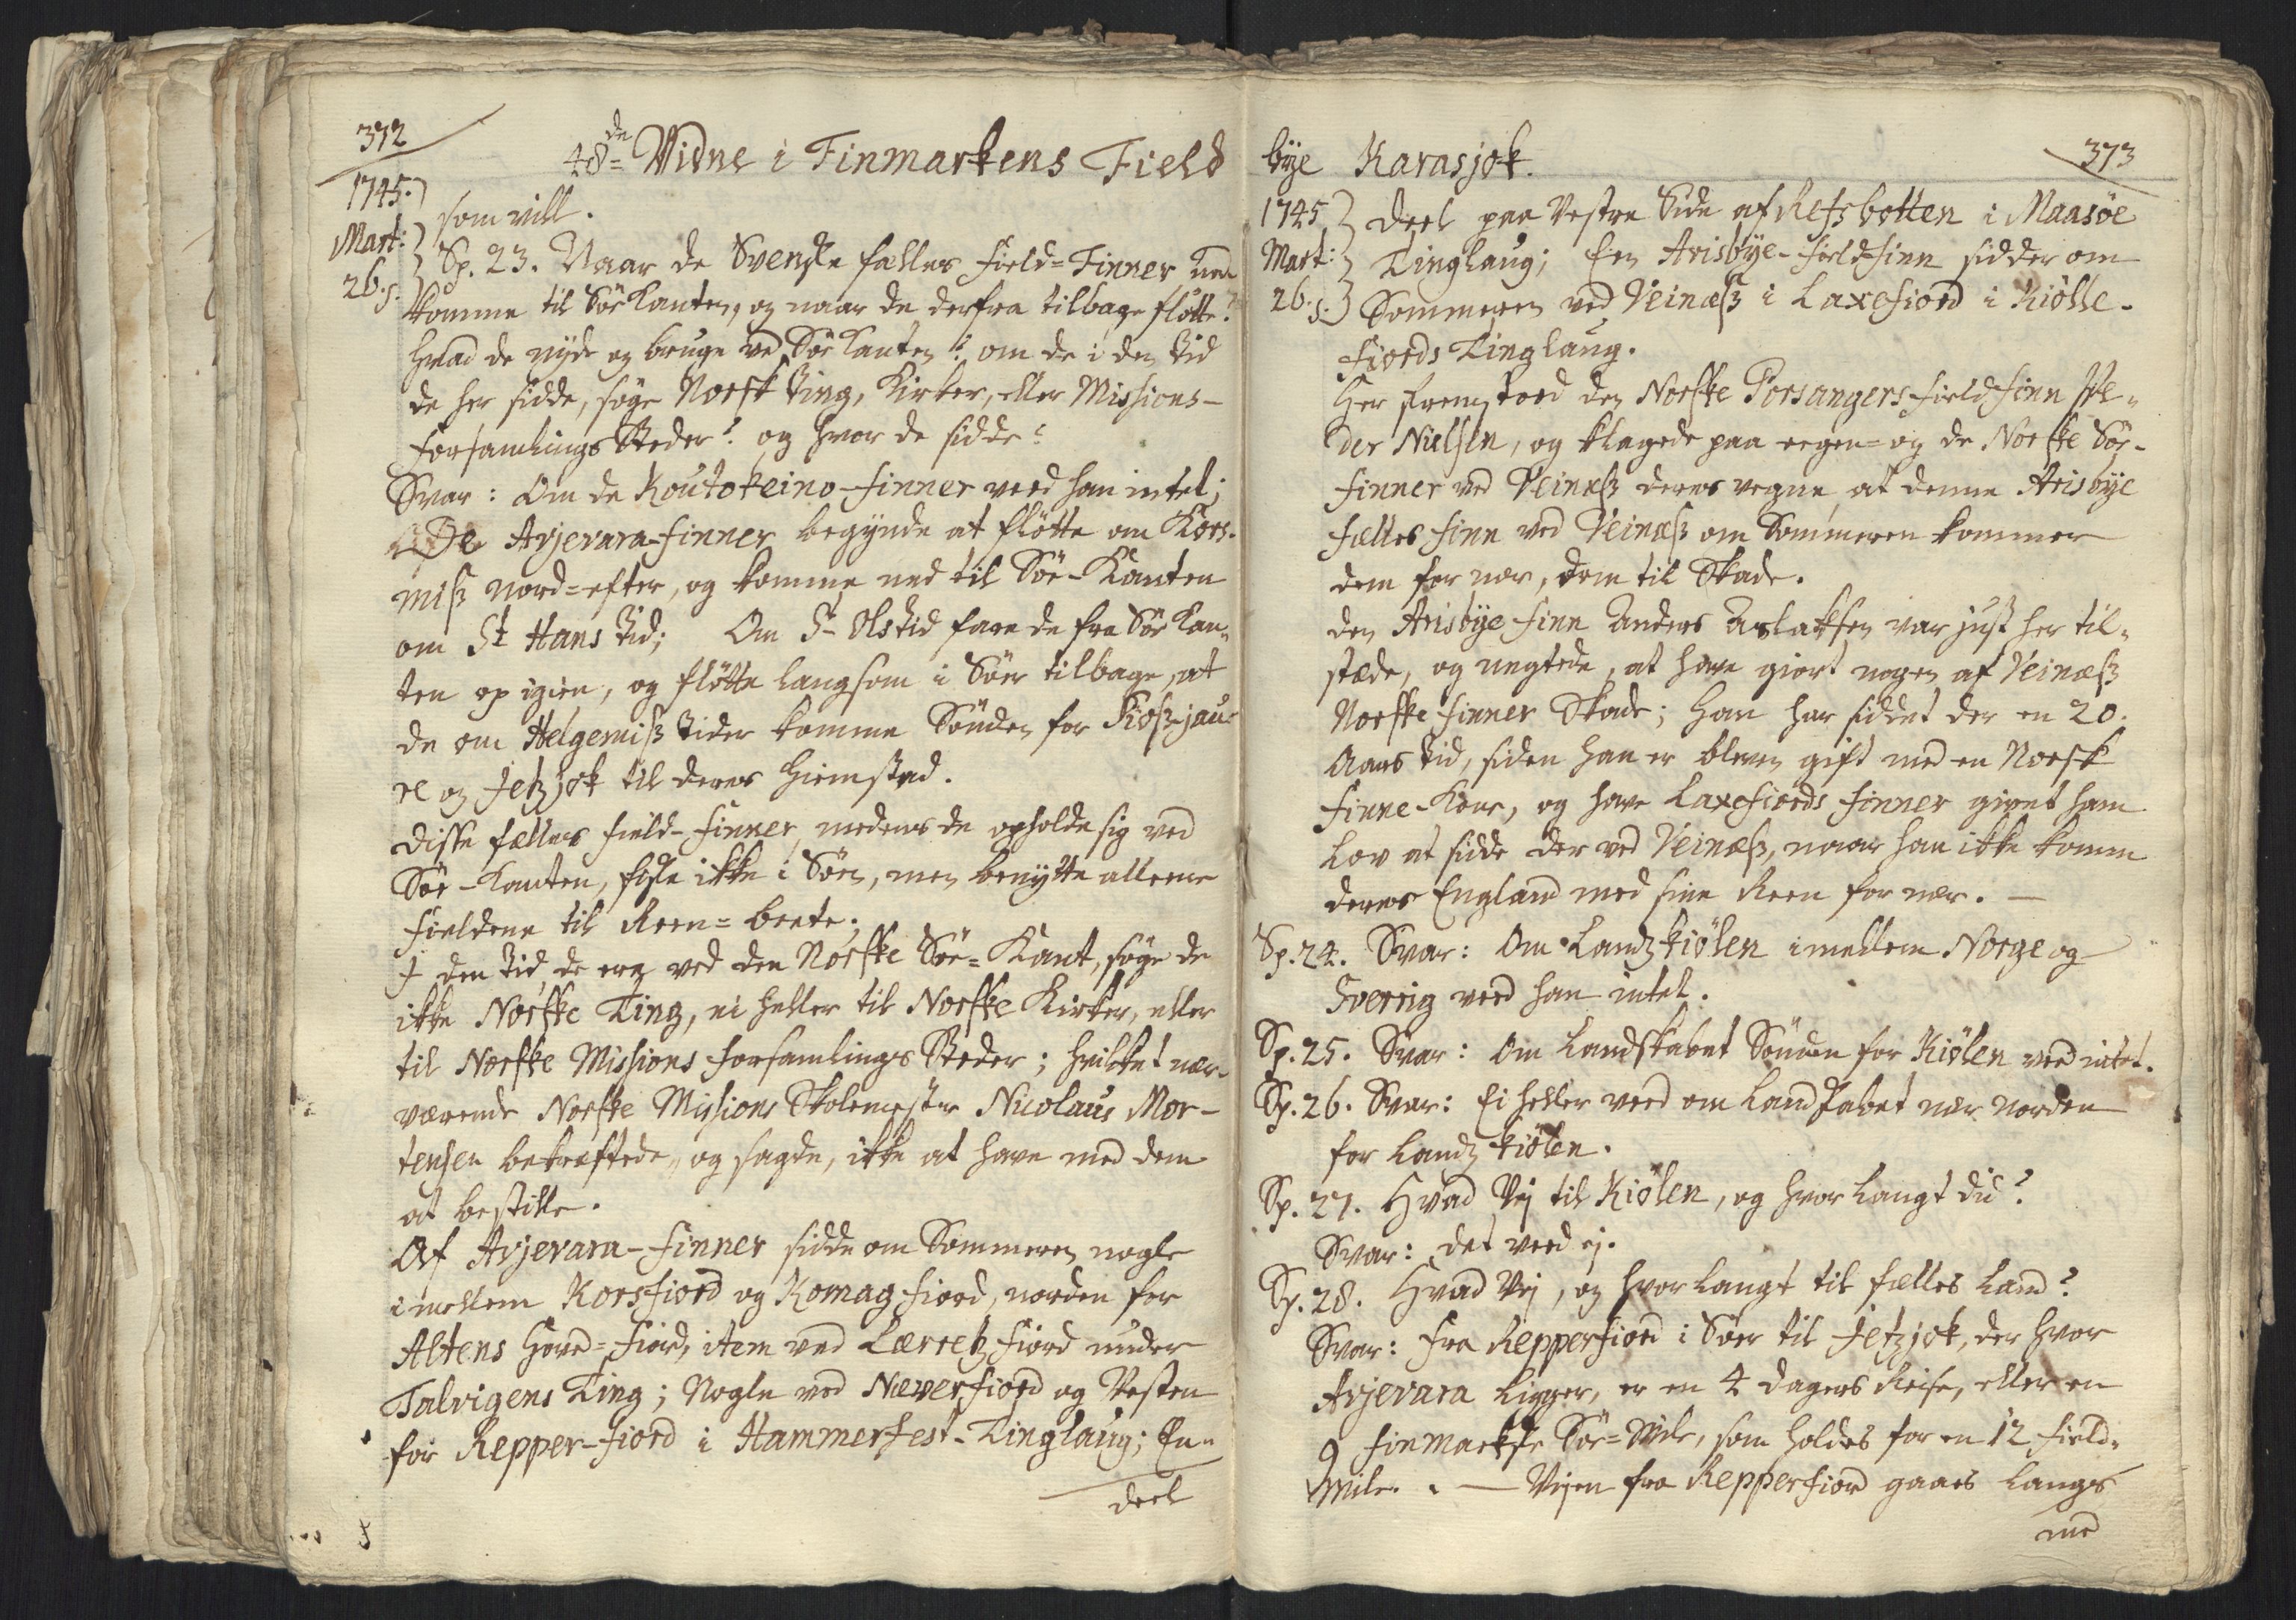 372
48de Vidne i Finmarkens Field
1745.
Mart:
26. s.
som vill.
Sp. 23. Naar de Svenske fælles Field-Finner ned
komme til Söe Kanten, og naar de derfra tilbage flötte?
hvad de nyde og bruge ved Söe Kanten? om de i den tid
de her sidde, söge Norsk Ting, Kirker, eller Missions-
forsamlings Steder? og hvor de sidde?
Svar: Om de Koutokeino-finner veed han intet;
De Avjevara-finner begynde at flötte om Kors-
miss nord-efter, og komme ned til Söe-Kanten
om St Hans tid; Om St Olstid fare de fra Söe Kan-
ten op igien, og flötte langsom i Söer tilbage, at
de om Helgemiss tider komme Sönden for Kiossjau-
re og Jetzjok til deres hiemstad.
Disse fælles field-finner, medens de opholde sig ved
Söe-Kanten, fiske ikke i Söen, men benytte alleene
fieldene til Reen-beete;
I den tid de ere ved den Norske Söe-Kant, söge de
ikke Norske Ting, ei heller til Norske Kirker, eller
til Norske Missions forsamlings Steder; hvilket nær-
værende Norske Missions Skolemester Nicolaus Mor-
tensen bekræftede, og sagde, ikke at have med dem
at bestille.
Af Avjevara-finner sidde om Sommeren nogle
imellem Korsfiord og Komagfiord, norden for
Altens Hoved-fiord, item ved Lerretzfiord under
Talvigens Ting; Nogle ved Næverfiord og Vesten
for Repper-fiord i Hammerfest-Tinglaug; En-
deel
bye Karasjok.
373
1745
Mart:
26. s.
deel paa Vestre Side af Refsbotten i Maasöe
Tinglaug; Een Arisbye-fieldfinn sidder om
Sommeren ved Veinæss i Laxefiord i Kiölle-
fiords Tinglaug.
Her fremstoed den Norske Porsangers fieldfinn Pe-
der Nielsen, og klagede paa eegen- og de Norske Söe-
finner ved Veinæss deres vegne, at denne Arisbye
fælles finn ved Veinæss om Sommeren kommer
dem for nær, dem til Skade.
den Arisbye finn Anders Aslaksen var just her til-
stæde, og negtede, at have giort nogen af Veinæss
Norske finner Skade; han har siddet der en 20.
Aars tid, siden han er bleven gift med en Norsk
finne-Kone, og have Laxefiords finner givet ham
Lov at sidde der ved Veinæss, naar han ikke komm
deres England med sine Reen for nær. —
Sp. 24. Svar: Om Landzkiölen imellem Norge og
Sverrig veed han intet.
Sp. 25. Svar: Om Landskabet Sönden for Kiölen veed intet.
Sp. 26. Svar: Ei heller veed om Landskabet nær norden
for Landzkiölen.
Sp. 27. Hvad Vej til Kiölen, og hvor langt did?
Svar: det veed ej.
Sp. 28. Hvad Vej, og hvor langt til fælles Land?
Svar: fra Repperfiord i Söer til Jetzjok, der hvor
Avjevara ligger, er en 4 dagers Reise, eller en
9 finmarkske Söe-Mile, som holdes for en 12 field-
Mile. — Vejen fra Repperfiord gaaes langs
med